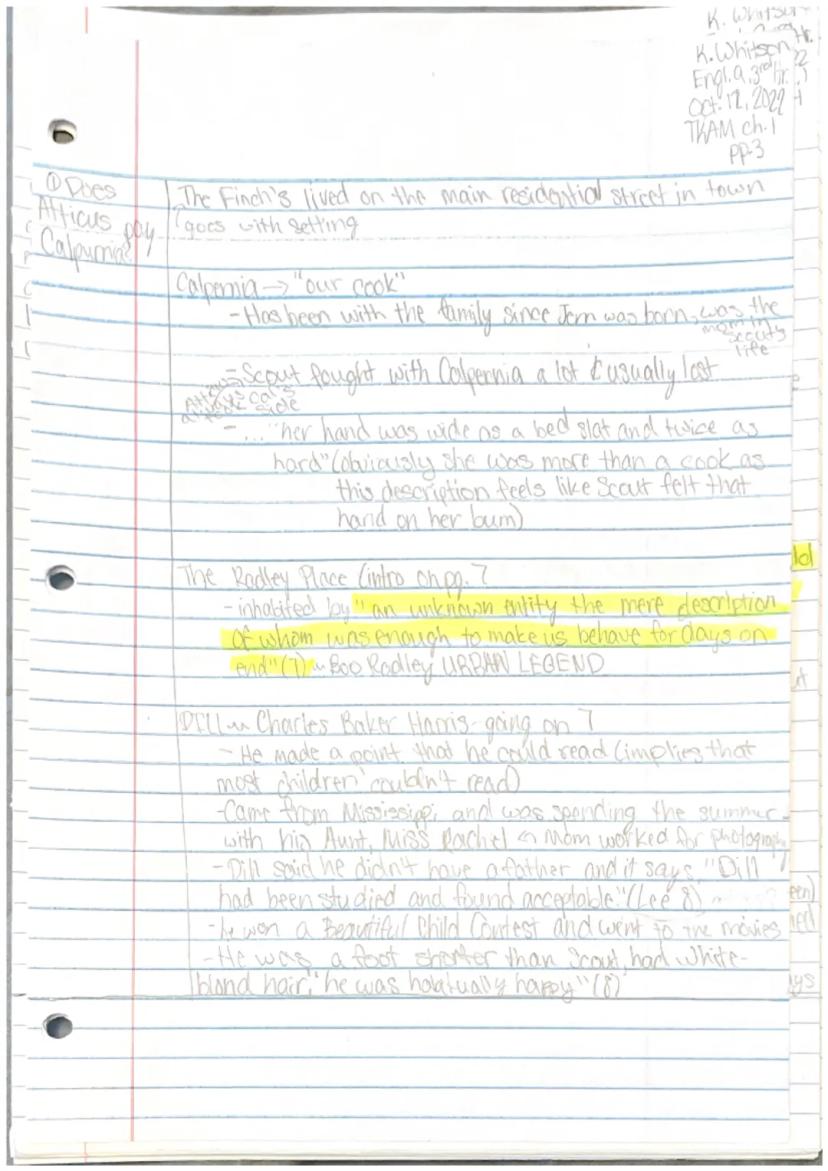 K. Whitson
K. Whitson
Engl. 9, 3rd hr.
Oct. 12, 2022
TKAM ch. 1
pp-3
① Does
Atticus pay
Calpurnia?
The Finch's lived on the main residential street in town
goes with setting
Calpernia → "our cook"
- Has been with the family since Jem was born, was the
mom in
scouts
life
- Scout fought with Calpernia a lot & usually lost
Atticus
always
took cal's
side
- ... "her hand was wide as a bed slat and twice as
hard" (obviously she was more than a cook as
this description feels like Scout felt that
hand on her bum)
The Radley Place (intro on pg. 7
- inhabited by "an unknown entity the mere description
of whom was enough to make us behave for days on
end" (7) ~ Boo Radley URBAN LEGEND
DILL ~ Charles Baker Harris - going on 7
- He made a point that he could read (implies that
most children couldn't read)
- Came from Mississippi and was spending the summer
with his Aunt, Miss Rachel ↔ Mom worked for photography
- Dill said he didn't have a father and it says, "Dill
had been studied and found acceptable." (Lee 8)
- he won a Beautiful Child Contest and went to the movies
- He was a foot shorter than Scout, had white-
blond hair, "he was habitually happy" (8)